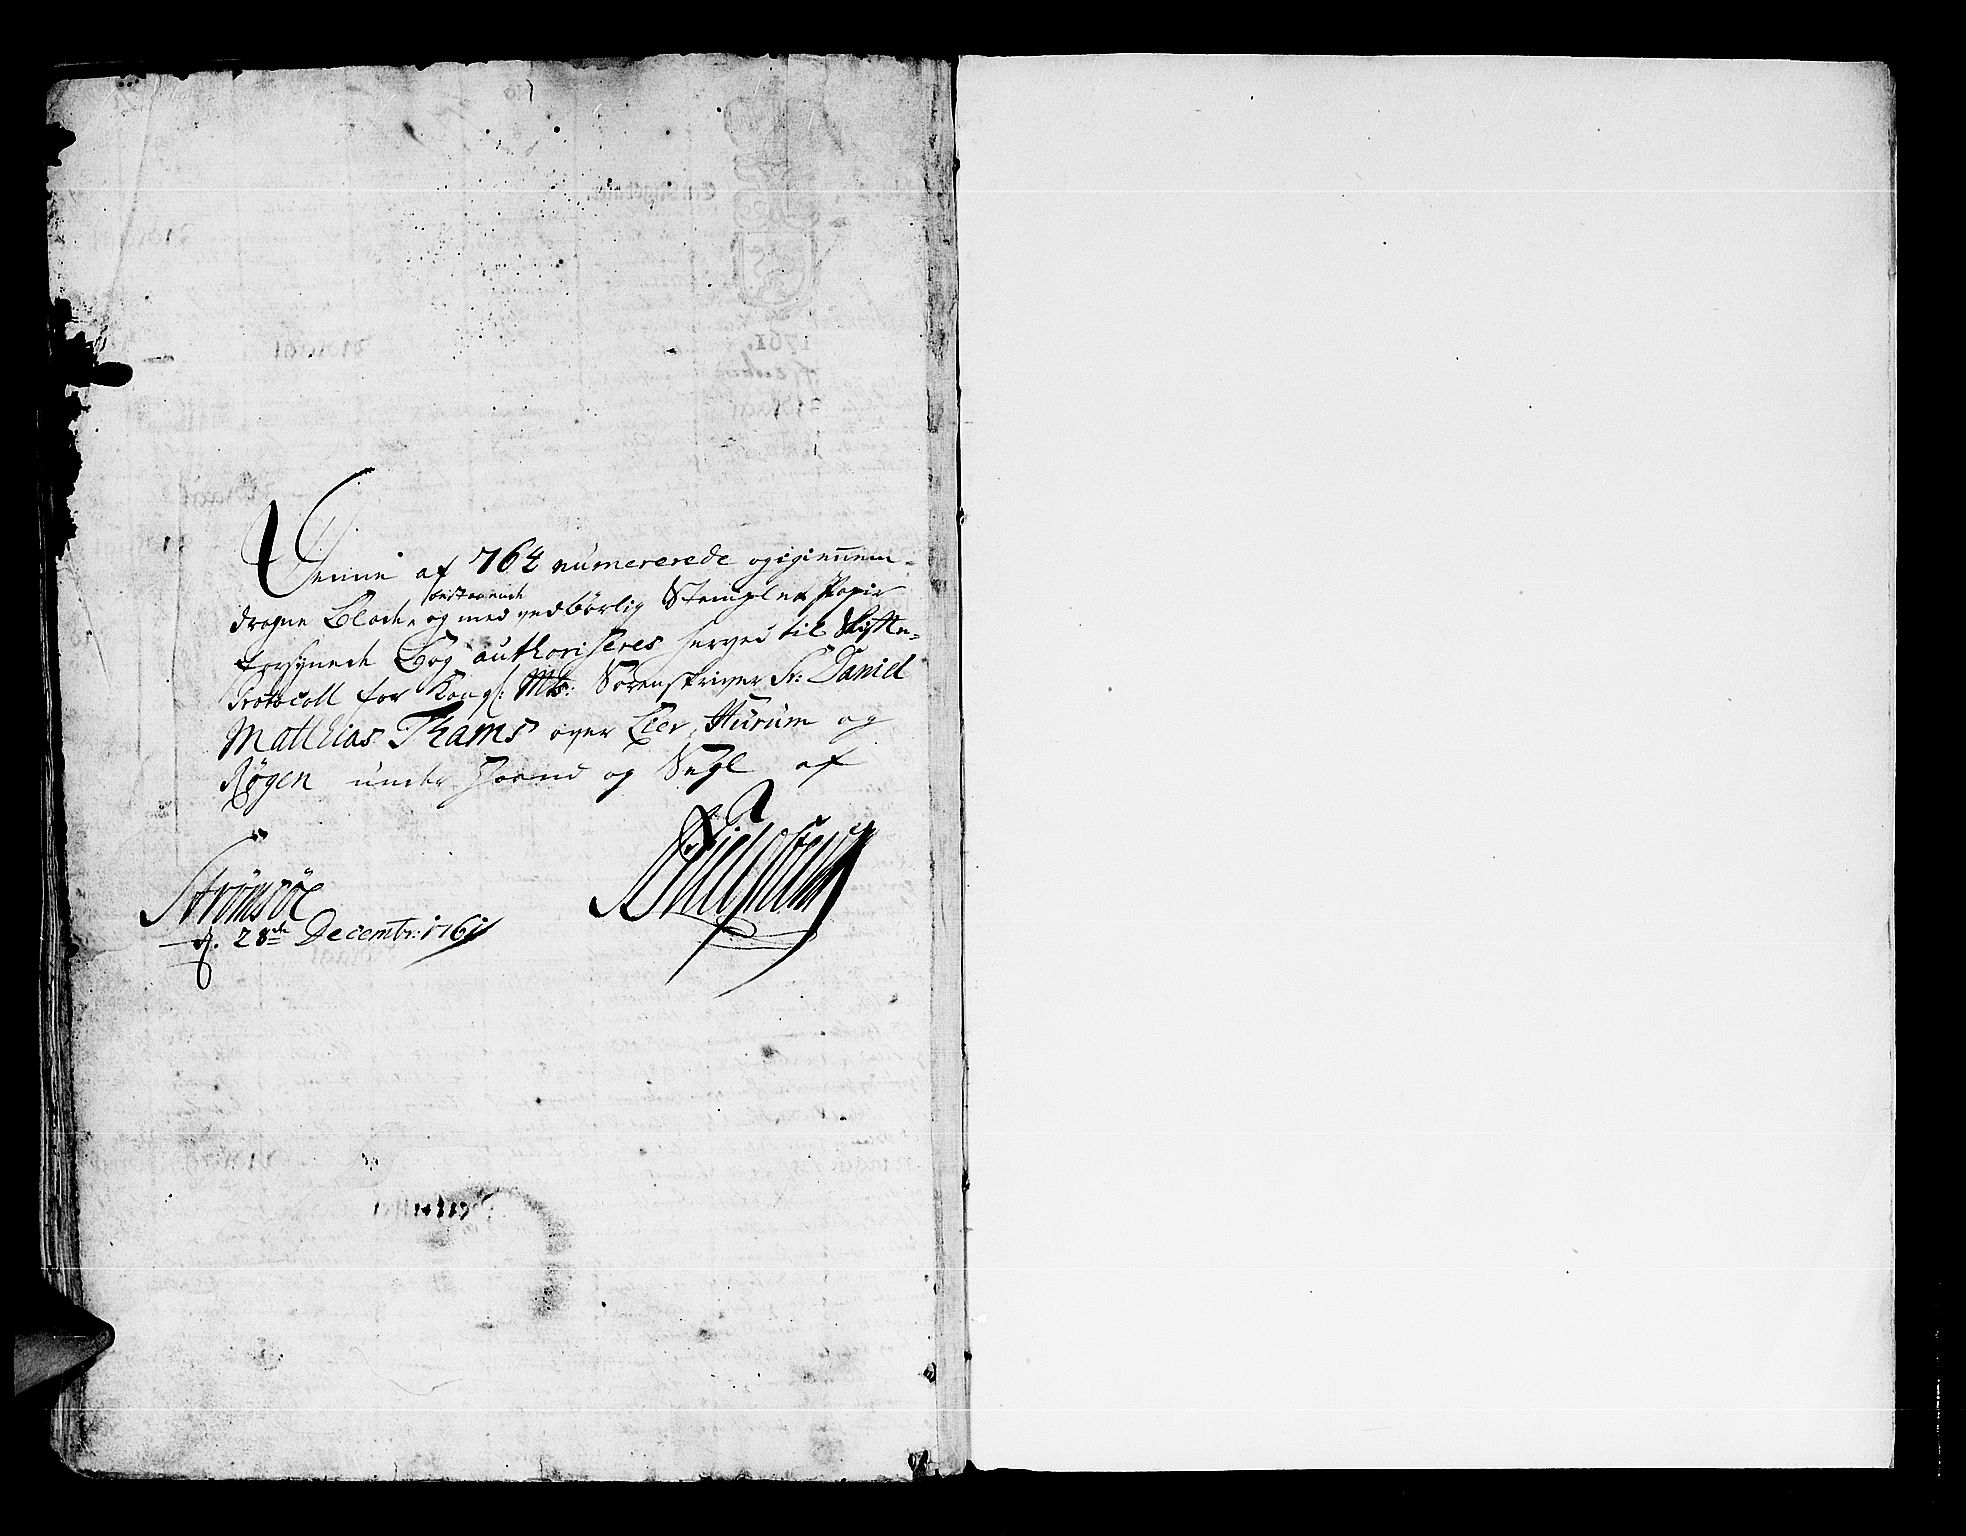 Denne af 764 numererede og igiennem-
dragne Blade bestaaende og med vedbørlig Stemplet Papir
forsynede Bog authoriseres herved til Skifte-
Protocoll for Kongl: Mts: Sorenskriver Sr: Daniel
Matthias Thams over Lier, Hurum og
Røgen under Haand og Segl af
Strømsöe
d. 28de Decembr: 1761